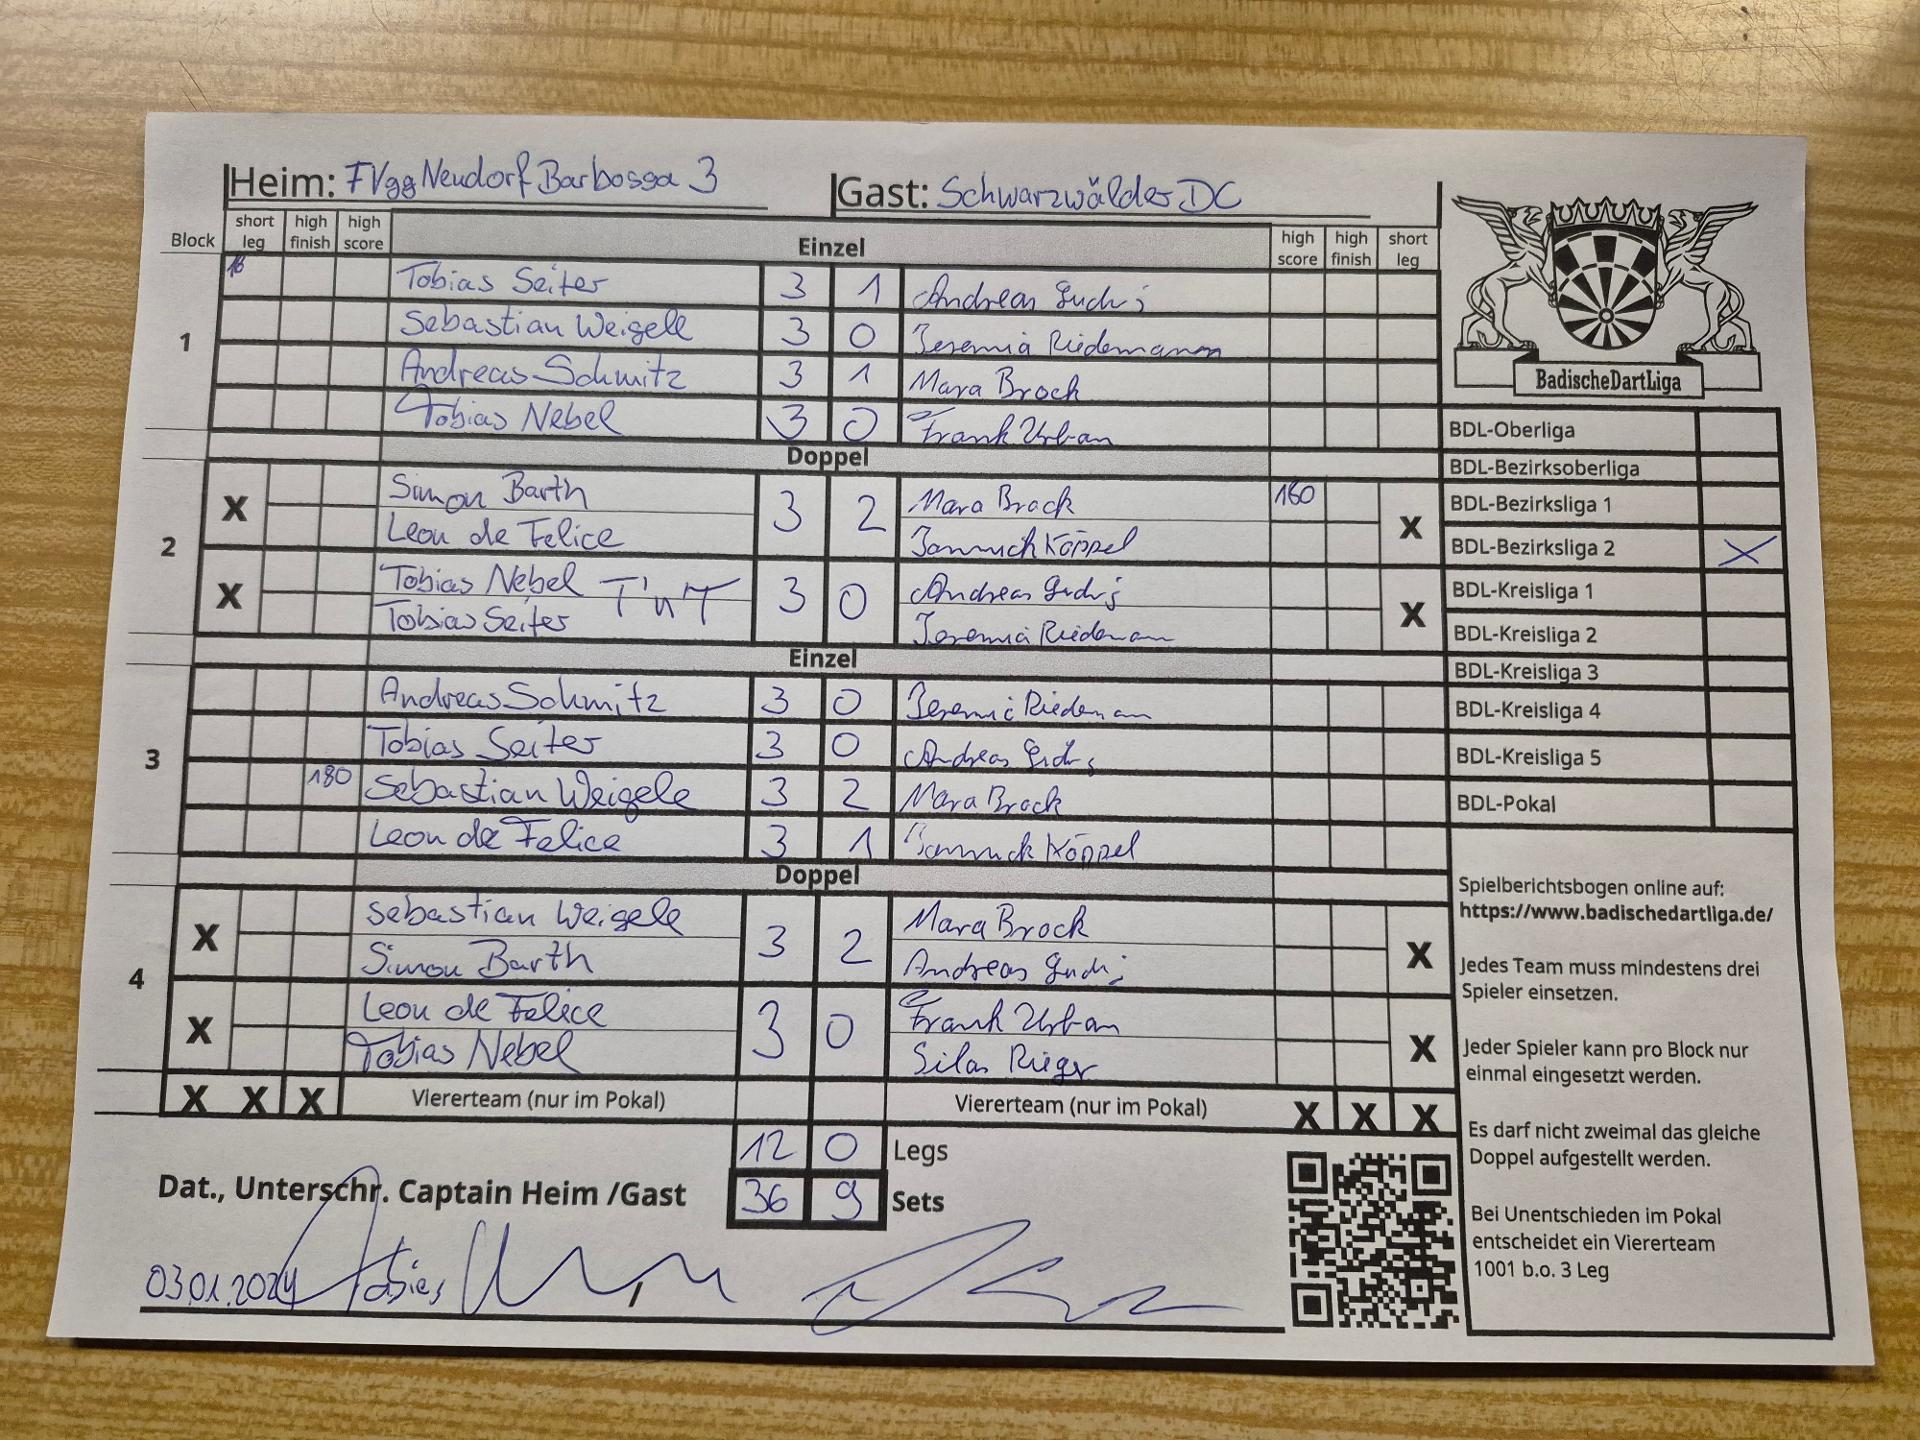 Heim: FVgg Neudorf Barbossa 3 Gast: Schwarzwälder DC
Block short leg high finish high score Einzel high score high finish short leg
1
16 Tobias Seiter 3 1 Andreas
Sebastian Weigele 3 0 Jeremia Riedemann
Andreas Schmitz 3 1 Mara Brock
Tobias Nebel 3 0 Frank Urban
Doppel
2
X Simon Barth 3 2 Mara Brock 180 X
Leon de Felice Jannick Köppel
X Tobias Nebel T'n'T 3 0 Andreas X
Tobias Seiter Jeremia Riedemann
Einzel
3
Andreas Schmitz 3 0 Jeremia Riedemann
Tobias Seiter 3 0 Andreas
180 Sebastian Weigele 3 2 Mara Brock
Leon de Felice 3 1 Jannick Köppel
Doppel
4
X Sebastian Weigele 3 2 Mara Brock X
Simon Barth Andreas
X Leon de Felice 3 0 Frank Urban X
Tobias Nebel Silas Rieger
X X X Viererteam (nur im Pokal) Viererteam (nur im Pokal) X X X
12 0 Legs
Dat., Unterschr. Captain Heim /Gast 36 9 Sets
03.01.2024 Tobias
BadischeDartLiga
BDL-Oberliga
BDL-Bezirksoberliga
BDL-Bezirksliga 1
BDL-Bezirksliga 2 X
BDL-Kreisliga 1
BDL-Kreisliga 2
BDL-Kreisliga 3
BDL-Kreisliga 4
BDL-Kreisliga 5
BDL-Pokal
Spielberichtsbogen online auf:
https://www.badischedartliga.de/
Jedes Team muss mindestens drei
Spieler einsetzen.
Jeder Spieler kann pro Block nur
einmal eingesetzt werden.
Es darf nicht zweimal das gleiche
Doppel aufgestellt werden.
Bei Unentschieden im Pokal
entscheidet ein Viererteam
1001 b.o. 3 Leg